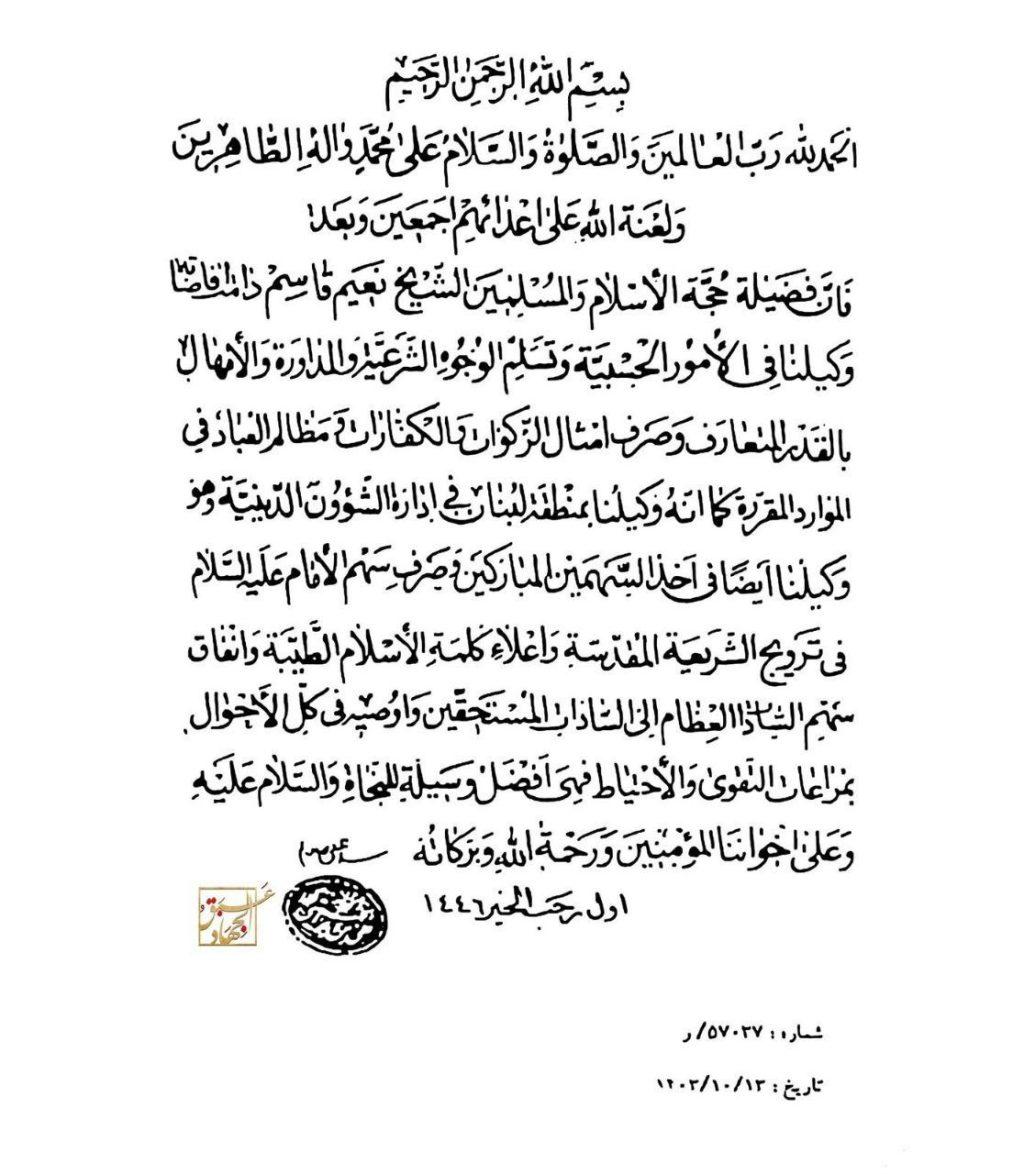 بسم الله الرحمن الرحیم
الحمد لله رب العالمین والصلوة والسلام علی محمد واله الطاهرین
ولعنة الله علی اعدائهم اجمعین وبعد
فان فضیلة حجة الأسلام والمسلمین الشیخ نعیم قاسم دامت افاضاته
وکیلنا فی الأمور الحسبیة وتسلم الوجوه الشرعیة والمداورة والأمهال
بالقدر المتعارف وصرف امثال الزکوات والکفارات و مظالم العباد فی
الموارد المقررة کما انه وکیلنا بمنطقة لبنان فی ادارة الشؤون الدینیة وهو
وکیلنا ایضًا فی اخذ السهمین المبارکین وصرف سهم الأمام علیه السلام
فی ترویج الشریعة المقدسة واعلاء کلمة الأسلام الطیبة وانفاق
سهم السادات العظام الی السادات المستحقین واوصیه فی کل الأحوال
بمراعات التقوی والأحتیاط فهی افضل وسیلة للنجاة والسلام علیه
وعلی اخواننا المؤمنین ورحمة الله وبرکاته
اول رجب الخیر ١٤٤٦
عبق الجهاد
شماره : ۵۷۰۲۷/ر
تاریخ : ۱۴۰۳/۱۰/۱۳